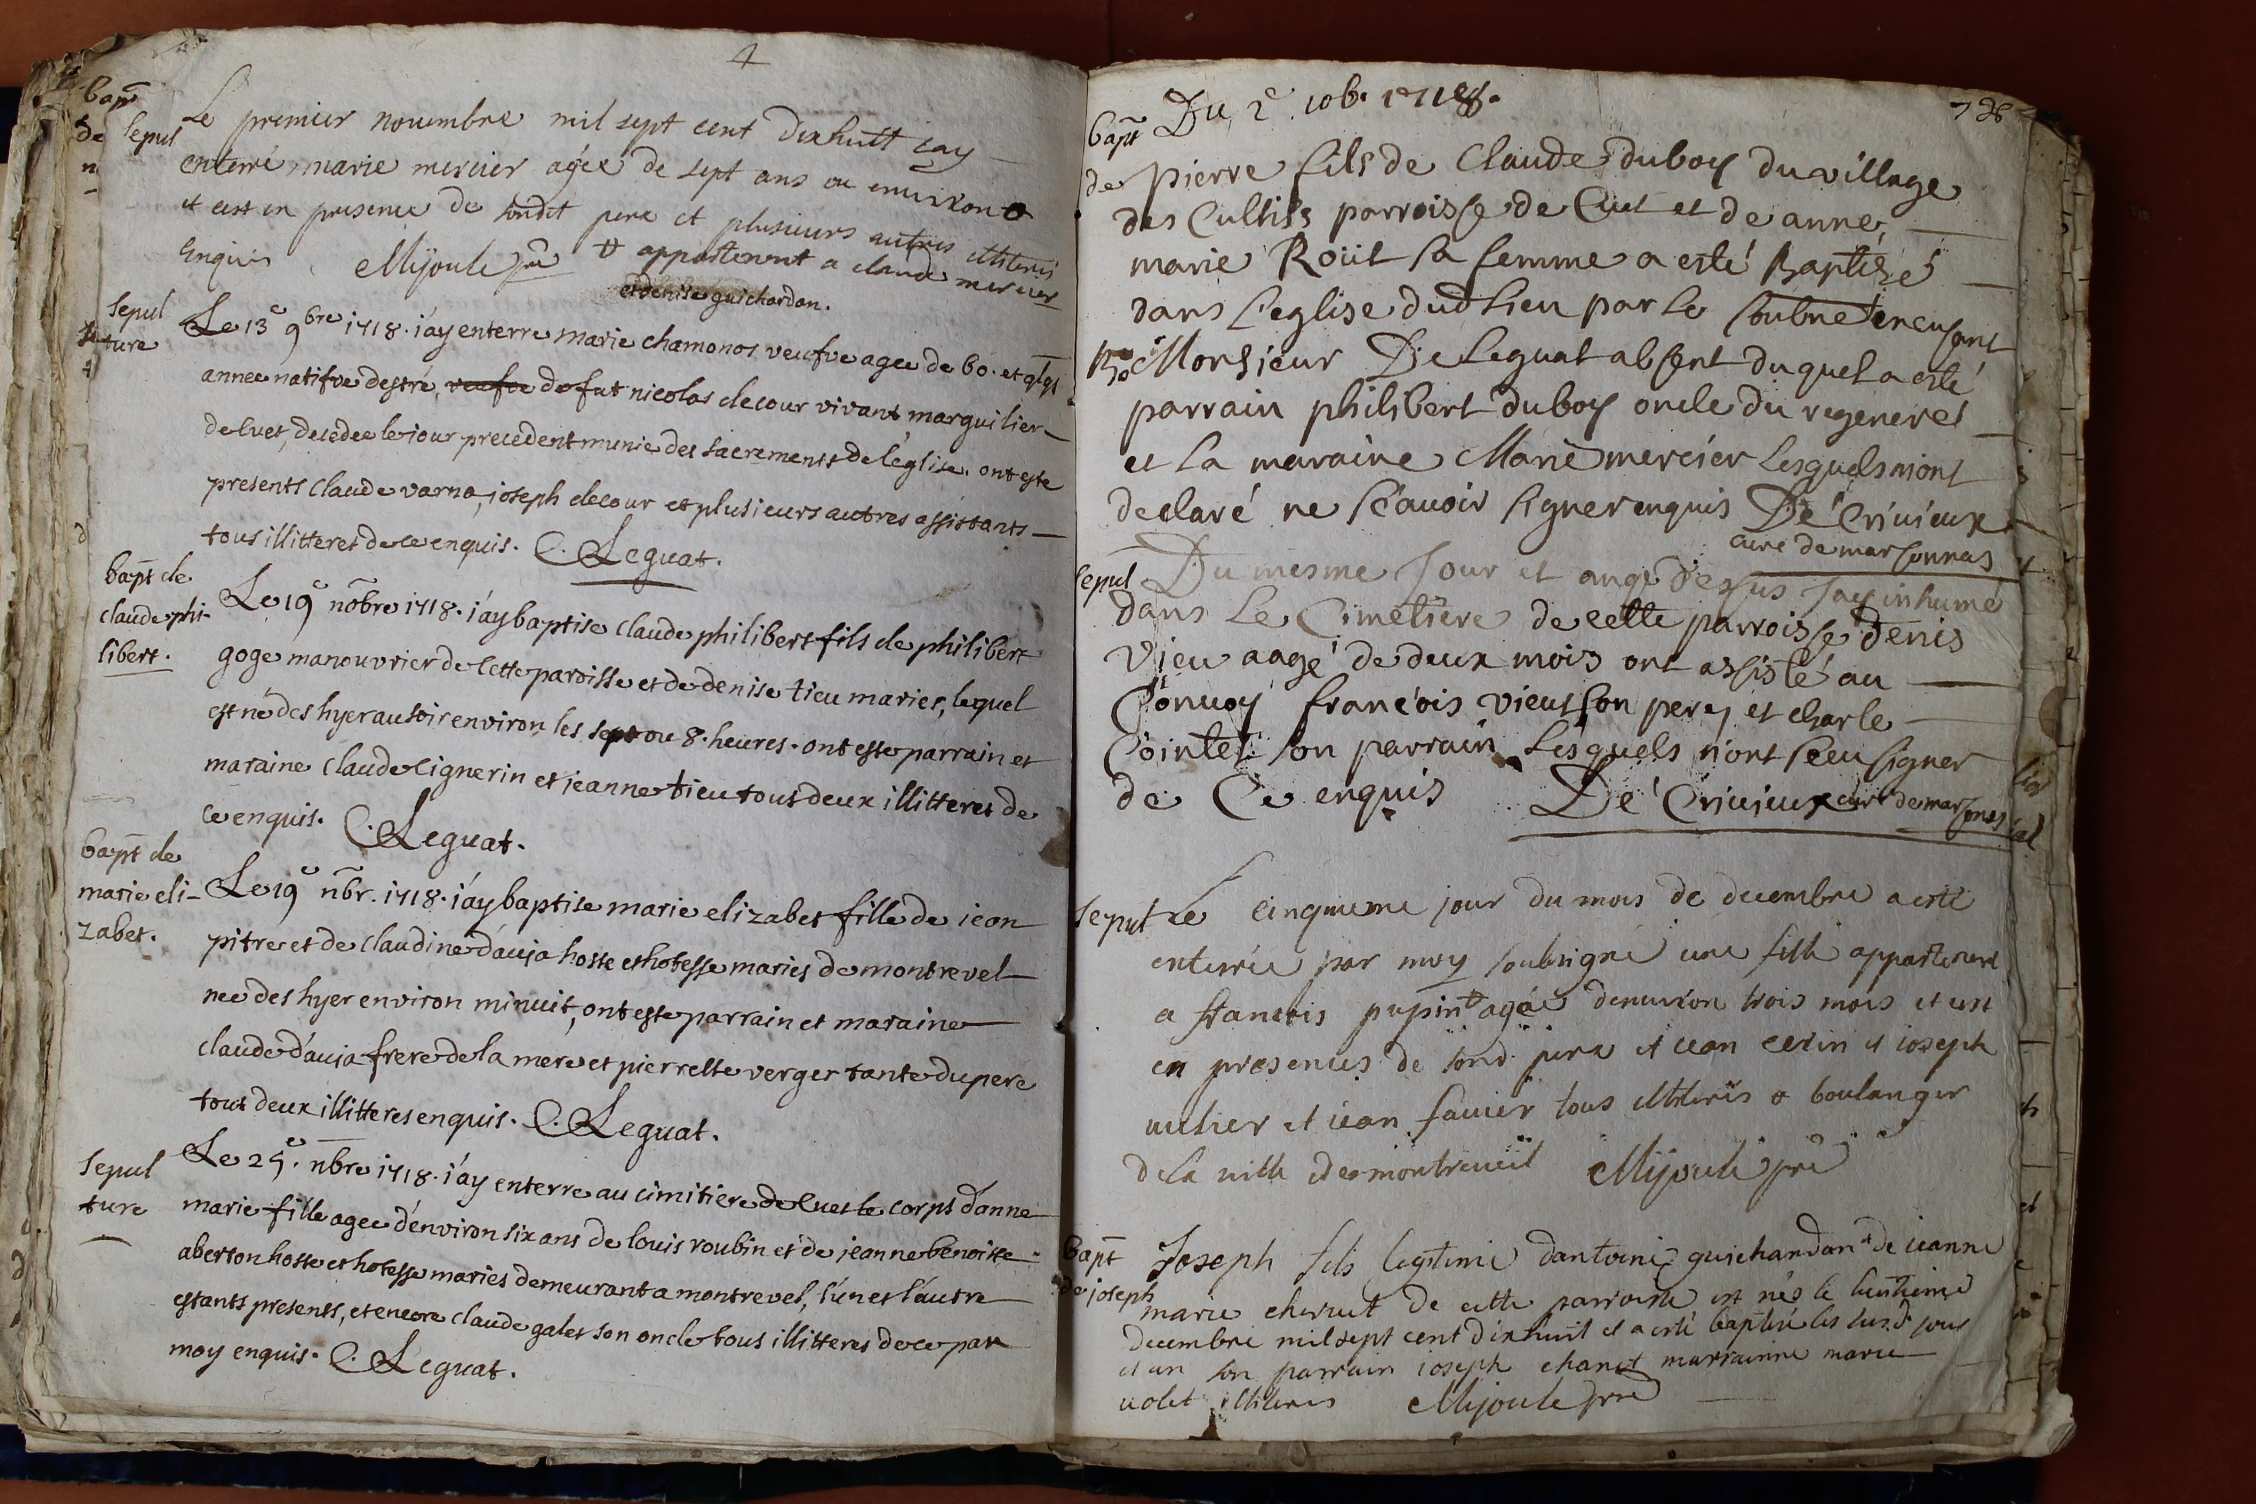 4
bapt
de
Sepul
Le premier novembre mil sept cent dixhuitt jay
enterré marie mercier agée de sept ans ou environ
et cest en presence de sondit pere et plusieurs autres illiteres
Enquis Mijoule pre appartenent a claude mercier
et denise guichardan.
Sepul
ture
Le 13e 9bre 1718. i'ay enterre marie chamonos veufve agee de 60. et qlqs
annee natifve destré, veufve de fut nicolas decour vivant marguilier
de Cuet, decedee le jour precedent munie des sacrements de l'eglise. ont este
presents claude varna, joseph decour et plusieurs autres assistants
tous illitteres de ce enquis. C. Leguat.
bapt de
claude phi-
libert.
Le 19e nobre 1718. i'ay baptise claude philibert fils de philibert
goge manouvrier de cette paroisse et de denise tieu maries, lequel
est né des hyer au soir environ les sept ou 8. heures. ont este parrain et
maraine claude cignerin et jeanne tieu tous deux illitteres de
ce enquis. C. Leguat.
bapt de
marie eli-
zabet.
Le 19e nbr. 1718. i'ay baptise marie elizabet fille de jean
pitre et de claudine d'auja hoste et hotesse maries de montrevel
nee des hyer environ minuit, ont este parrain et maraine
claude d'auja frere de la mere et pierrette verger tante du pere
tous deux illitteres enquis. C. Leguat.
Sepul
ture
Le 25e. nbre 1718. i'ay enterre au cimitiere de Cuet le corps d'anne
marie fille agee d'environ six ans de louis roubin et de jeanne benoitte
aberton hoste et hotesse maries demeurant a montrevel, l'un et l'autre
estants presents, et encore claude galet son oncle tous illitteres de ce par
moy enquis. C. Leguat.
bapt Du 2e. 10b. 1718.
de pierre fils de Claude duboy du village
des Cultiss parroisse de Cuet et de anne
marie Roüit sa femme a esté Baptisé
dans l'eglise dud lieu par le soubne en cusant
Monsieur De Leguat absent duquel a esté
parrain philibert duboy oncle du regeneré
et la maraine Marie mercier lesquels mont
declaré ne scavoir signer enquis De Crivieux
curé de marsonnas
Sepul Du mesme Jour et an que dessus Jay inhumé
dans le Cimetiere de cette parroisse denis
vieu aagé de deux mois ont assisté au
Convoy françois vieut son pere et charle
Cointet son parrain lesquels n'ont sceu signer
de Ce enquis De Crivieux curé de marsonas
Sepul Le cinquieme jour du mois de decembre a esté
enterrée par moy soubsigné une fille appartenent
a francois pupin agée denviron trois mois et cest
en presences de sond. pere et jean cerin et joseph
et jean favier tous illiterés boulanger
de la ville de montreveil Mijoule pre
bapt
de joseph
Joseph fils legitime dantoine guichardan et de jeanne
marie cheruit de cette parroisse est nés le huitieme
decembre mil sept cent dixhuit et a esté baptisé les susd jour
et an son parrain joseph chanet marrainne marie
volet illiteres Mijoule pre